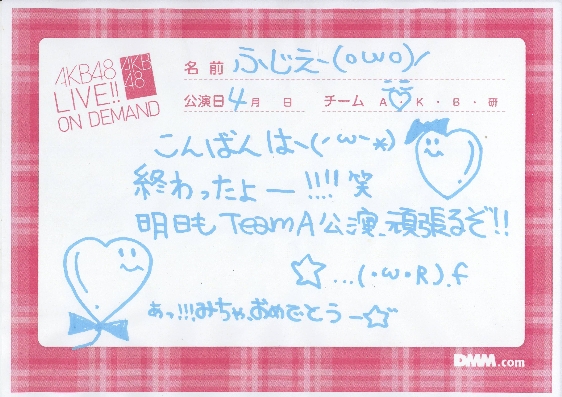 AKB48
LIVE!!
ON DEMAND
AKB
48
名前 ふじえー(oωo)ノ
公演日 4月 日 チーム A・K・B・研
こんばんは〜(・ω・*)
終わったよー!!!! 笑
明日もTeamA公演、頑張るぞ!!
☆...(・ω・R).f
あっ!!!みちゃ、おめでとうー☆
DMM.com